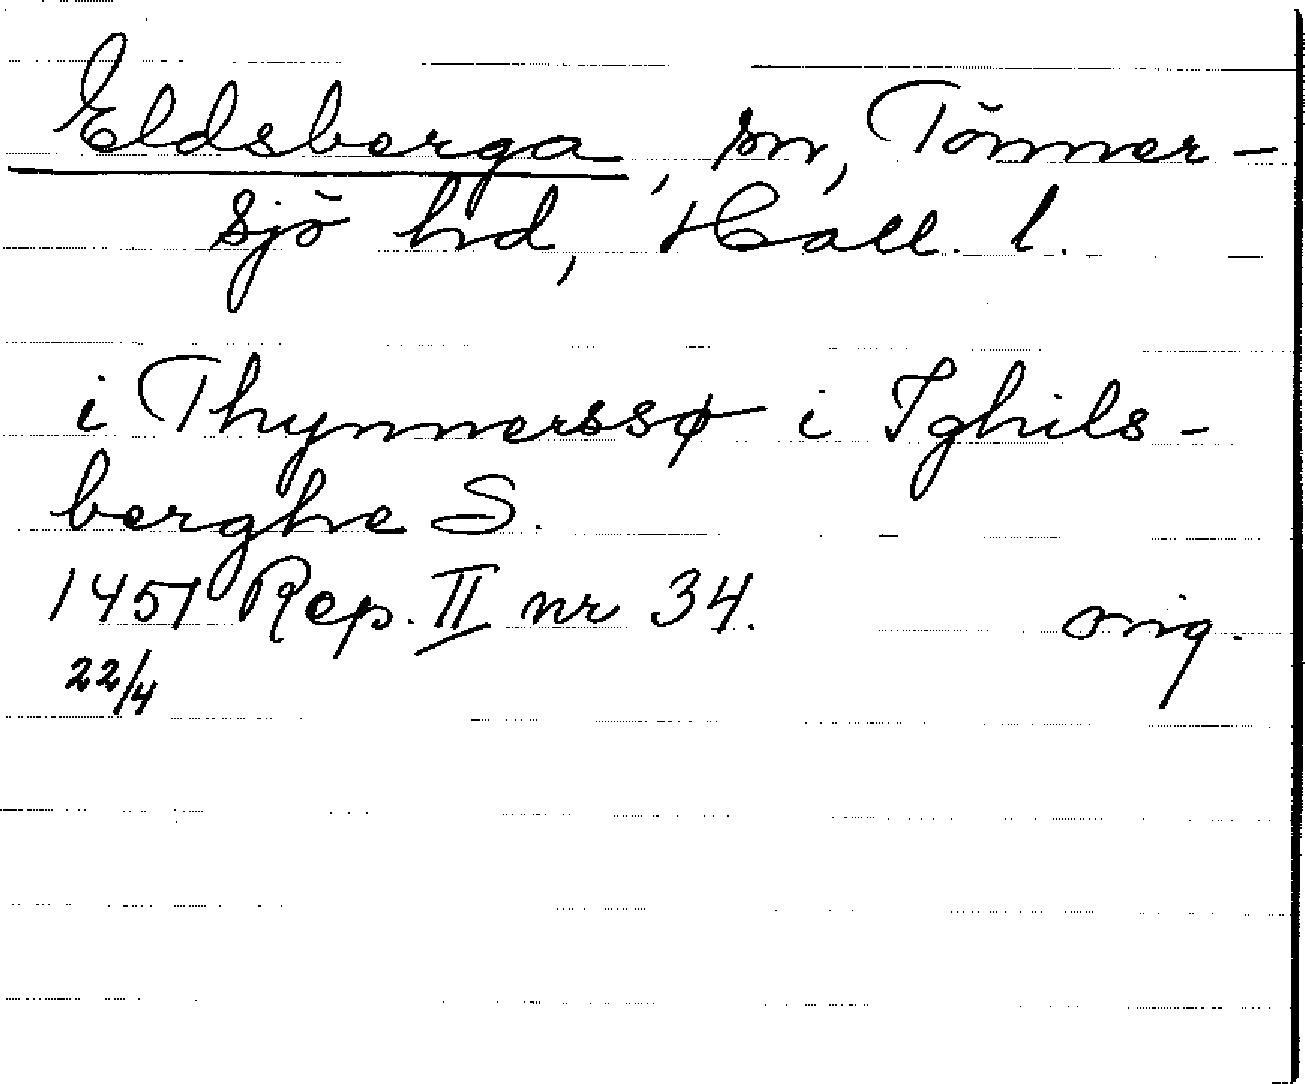 Eldsberga, sn, Tönner-
sjö hd, Hall. l.
i Thynnerssø i Ighils-
berghe S.
1451 Rep. II nr 34. orig.
22/4